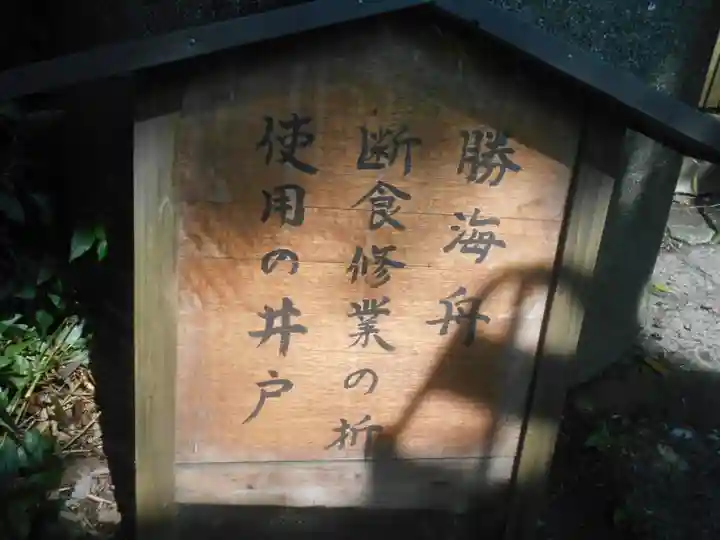 勝海舟
断食修業の折
使用の井戸